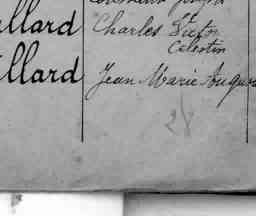 llard Charles Victor
Célestin
llard Jean Marie Augus
28